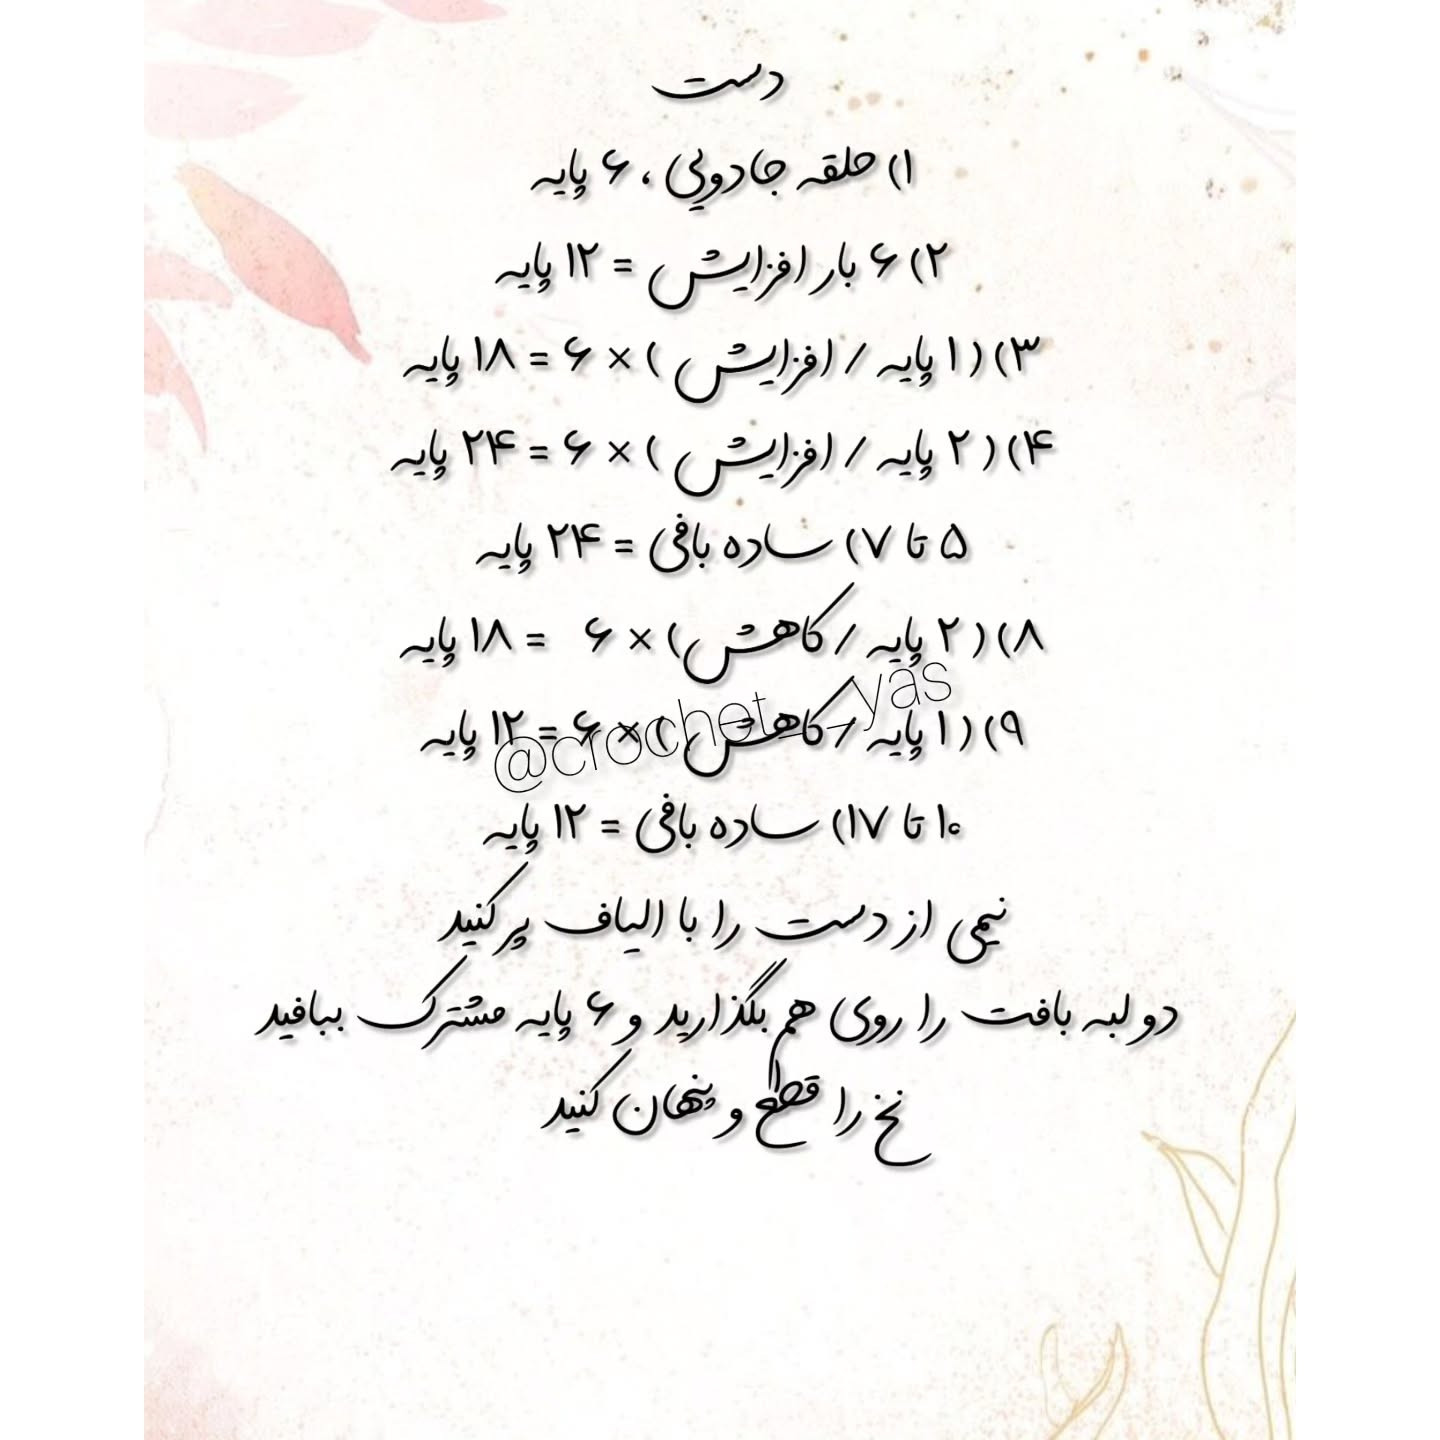 دست
۱) حلقه جادویی ، ۶ پایه
۲) ۶ بار افزایش = ۱۲ پایه
۳) ( ۱ پایه / افزایش ) × ۶ = ۱۸ پایه
۴) ( ۲ پایه / افزایش ) × ۶ = ۲۴ پایه
۵ تا ۷) ساده بافی = ۲۴ پایه
۸) ( ۲ پایه / کاهش ) × ۶ = ۱۸ پایه
۹) ( ۱ پایه / کاهش ) × ۶ = ۱۲ پایه
@crochet__yas
۱۰ تا ۱۷) ساده بافی = ۱۲ پایه
نیمی از دست را با الیاف پر کنید
دو لبه بافت را روی هم بگذارید و ۶ پایه مشترک ببافید
نخ را قطع و پنهان کنید